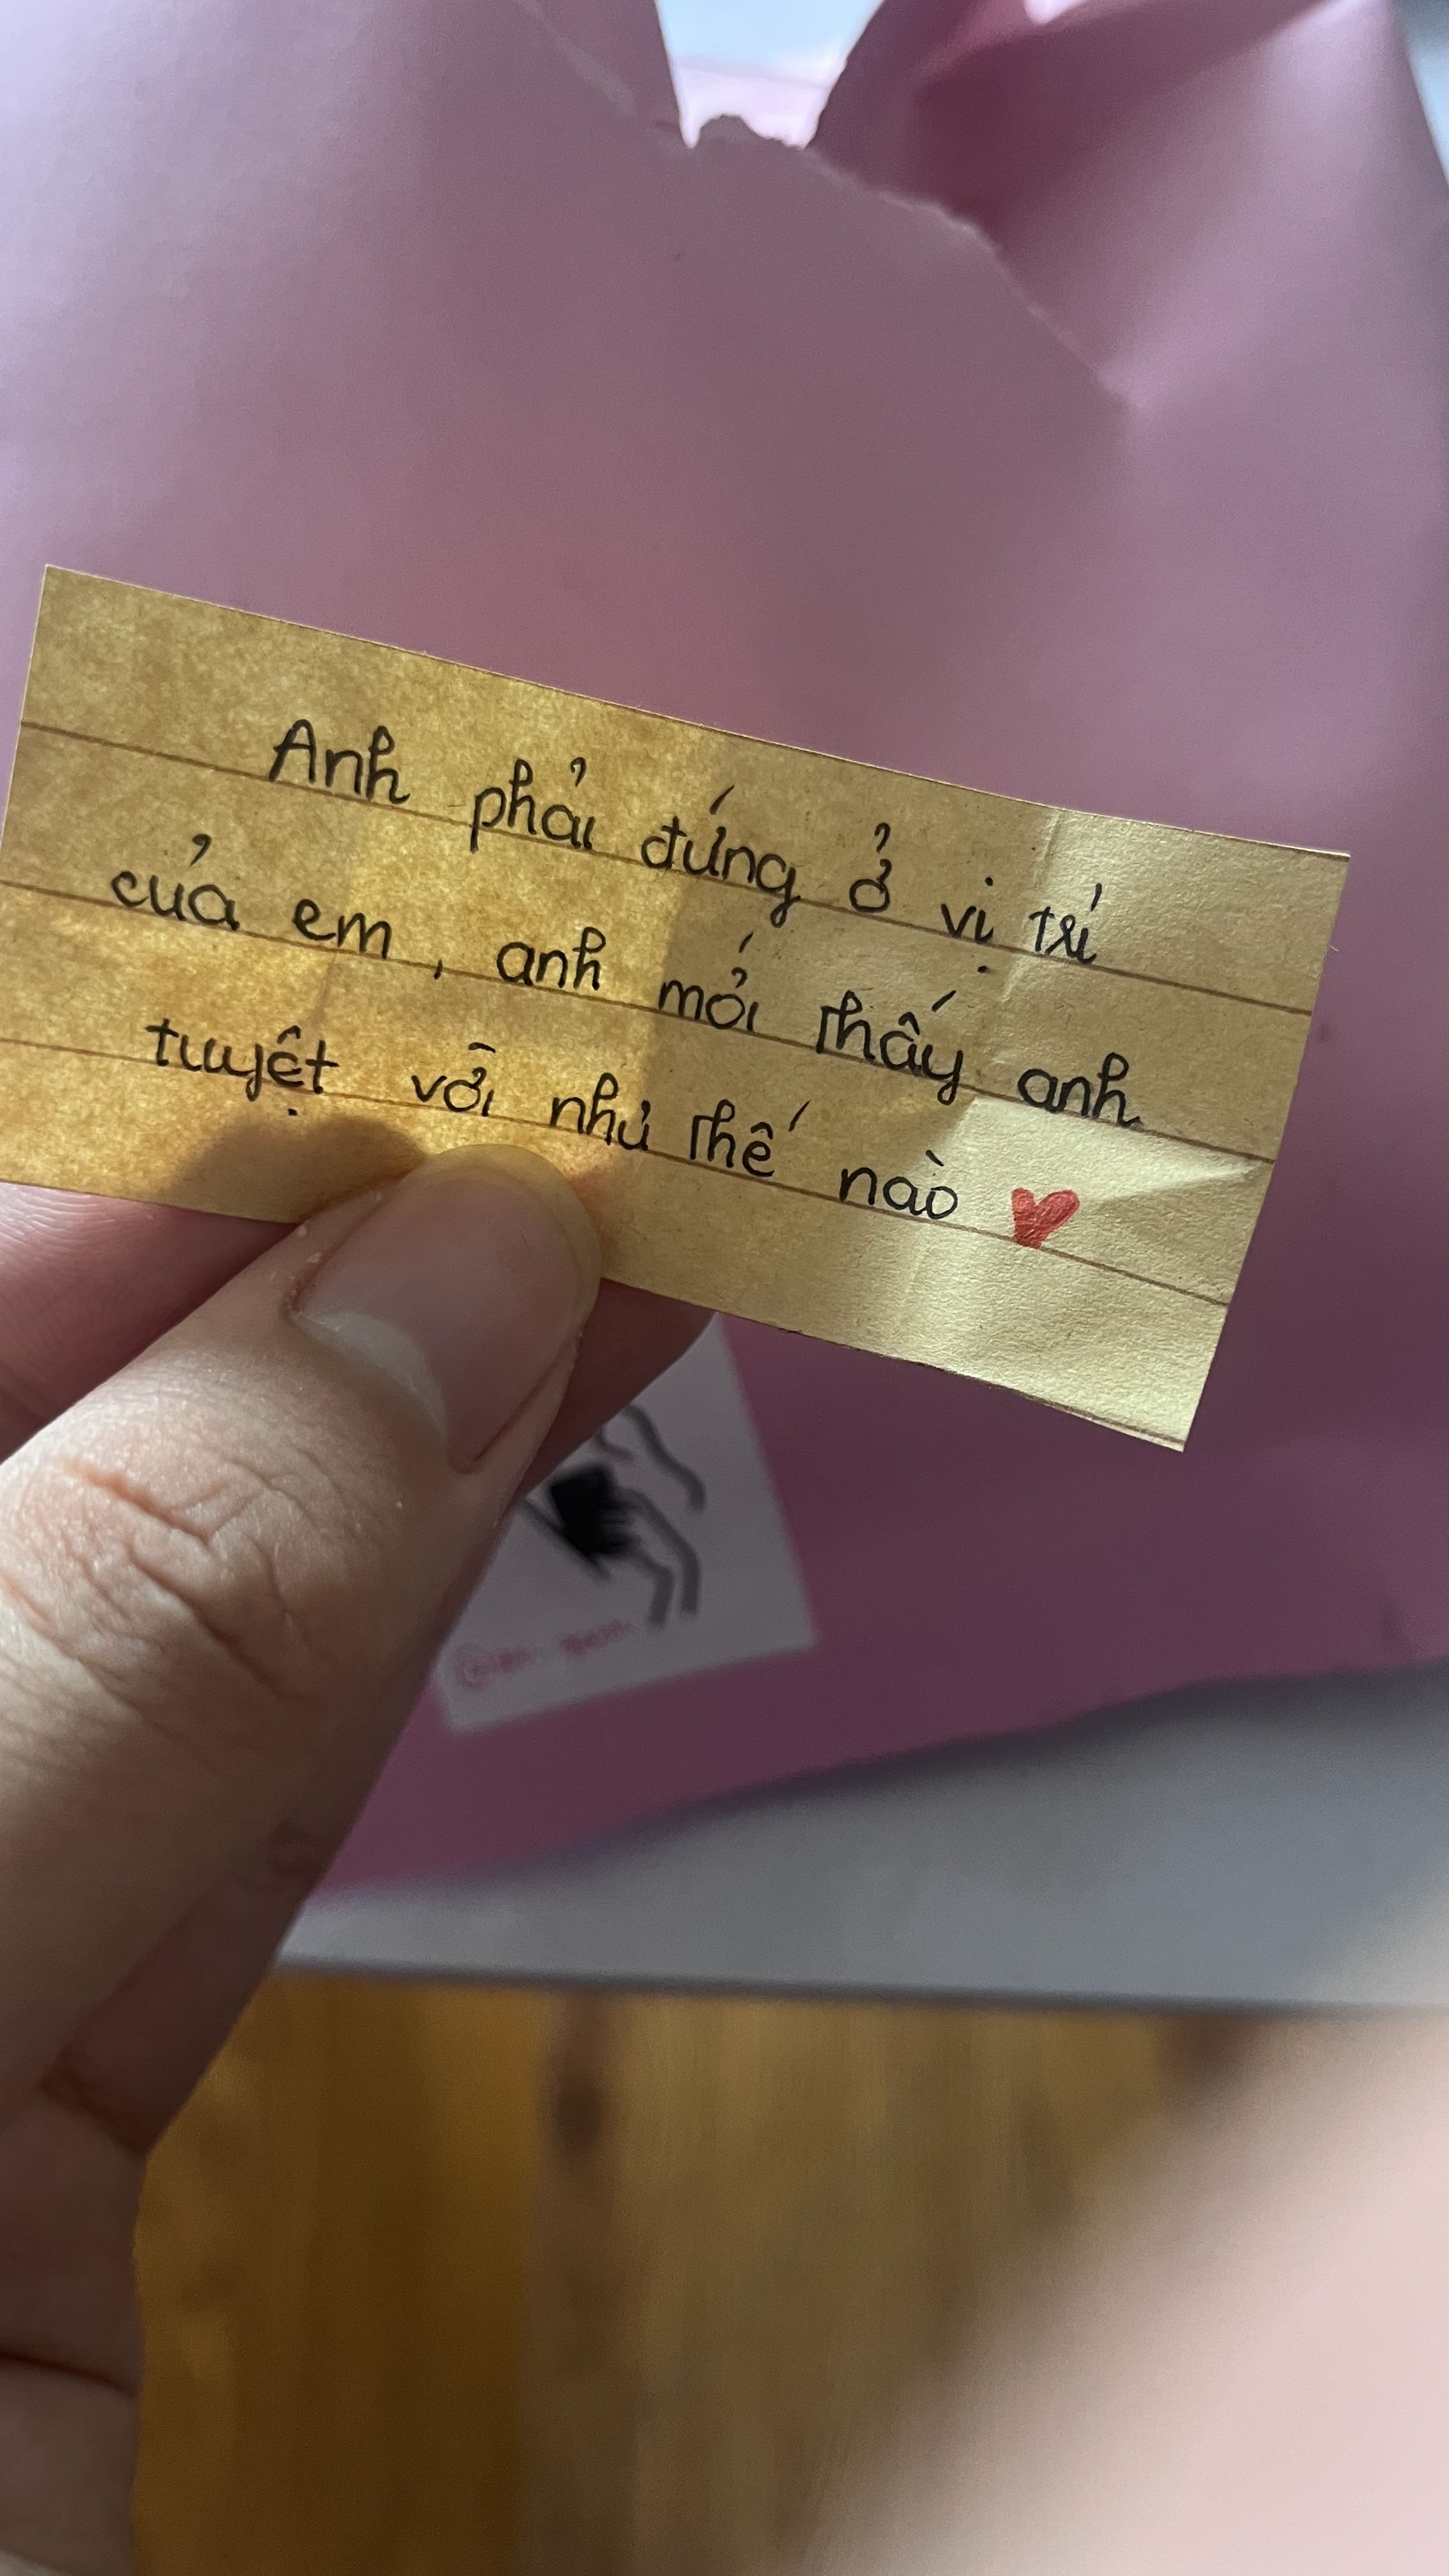 Anh phải đứng ở vị trí
của em, anh mới thấy anh
tuyệt vời như thế nào ♥